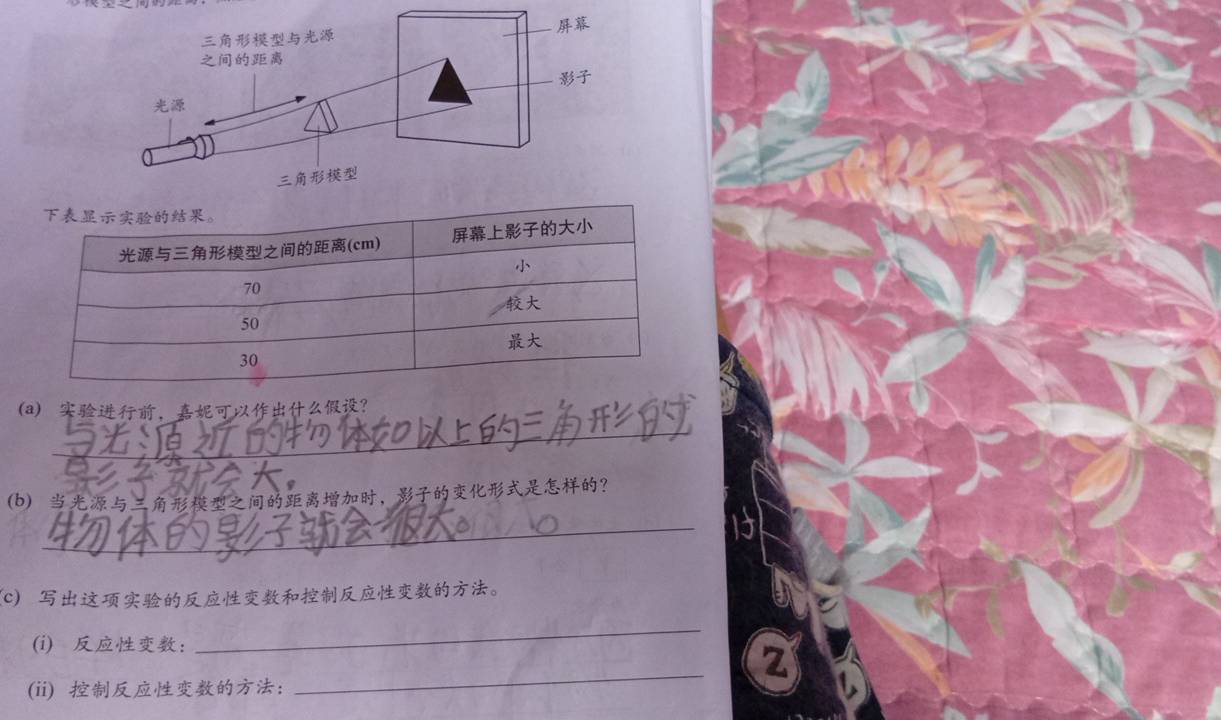 三角形模型与光源
之间的距离
屏幕
影子
光源
三角形模型
下表显示实验的结果。
光源与三角形模型之间的距离(cm) 屏幕上影子的大小
70 小
50 较大
30 最大
(a) 实验进行前，嘉妮可以作出什么假设？
与光源近的物体如以上的三角形的
影子就会大。
(b) 当光源与三角形模型之间的距离增加时，影子的变化形式是怎样的？
物体的影子就会很大。
(c) 写出这项实验的反应性变数和控制反应性变数的方法。
(i) 反应性变数：
(ii) 控制反应性变数的方法：
Z